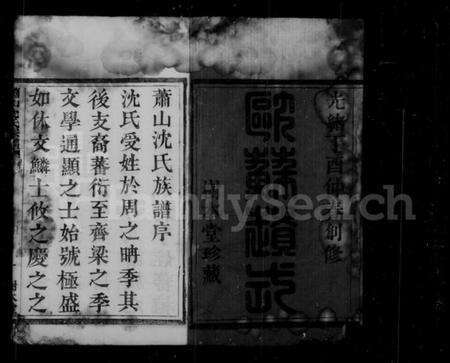 光緒丁酉仲
創修
歐蘇遺式
堂珍藏
蕭山沈氏族譜序
沈氏受姓於周之聃季其
後支裔蕃衍至齊梁之季
文學通顯之士始號極盛
如休文麟士攸之慶之之
FamilySearch